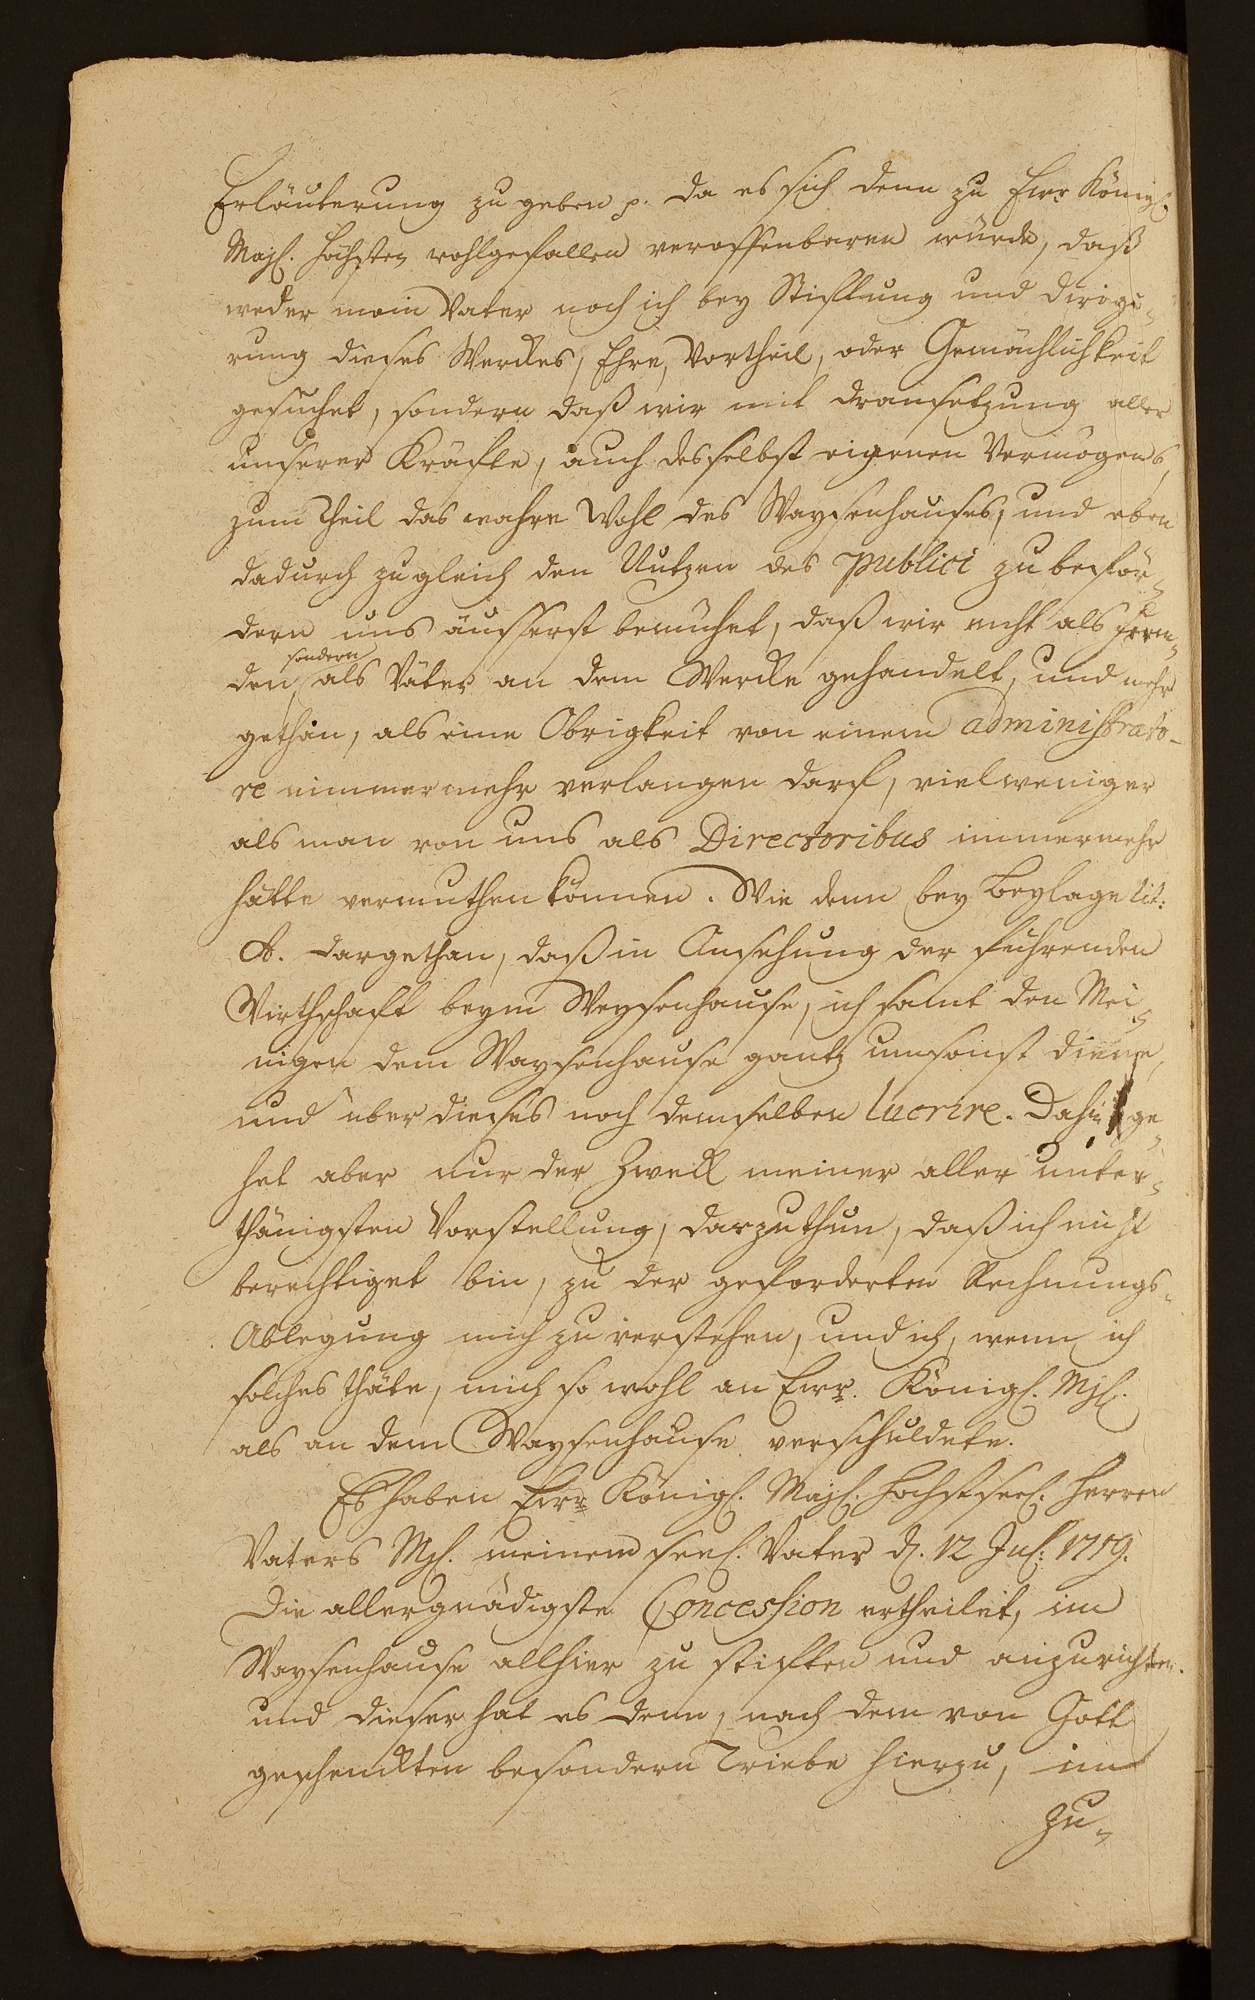 Erläuterung zu geben p. da es sich denn zu Ewr. Königl.
Majt. höchsten wohlgefallen veroffenbaren würde, daß
weder mein Vater noch ich bey Stifftung und dirigi-
rung dieses Werckes, Ehre, Vortheil, oder Gemächlichkeit
gesuchet, sondern daß wir mit dransetzung aller
unserer Kräffte, auch des selbst eigenen Vermögens,
zum Theil das wahre Wohl des Waysenhauses, und eben
dadurch zugleich den Nutzen des Publici zu beför-
dern uns äusserst bemühet, daß wir nicht als Frem-
den, sondern als Väter an dem Wercke gehandelt, und mehr
gethan, als eine Obrigkeit von einem administrato-
re nimmermehr verlangen darf, vielweniger
als man von uns als Directoribus immermehr
hätte vermuthen können. Wie denn bey Beylage lit:
A. dargethan, daß in Ansehung der führenden
Wirthschafft beym Waysenhause, ich samt den Mei-
nigen dem Waysenhause gantz umsonst diene,
und über dieses noch demselben lucrire. Dahin ge-
het aber nur der Zweck meiner aller unter-
thänigsten Vorstellung, darzuthun, daß ich nicht
berechtiget bin, zu der geforderten Rechnungs-
Ablegung mich zu verstehen, und ich, wenn ich
solches thäte, mich so wohl an Ewr. Königl. Mjt.
als an dem Waysenhause verschuldete.
Es haben Ewr. Königl. Majt. Höchstseel. Herren
Vaters Mjt. meinem seel. Vater d. 12 Jul: 1719.
Die allergnädigste Concession ertheilet, im
Waysenhause allhier zu stifften und anzurichten.
und dieser hat es denn, nach dem von Gott
geschenckten besondern Triebe hierzu, im
Zu-